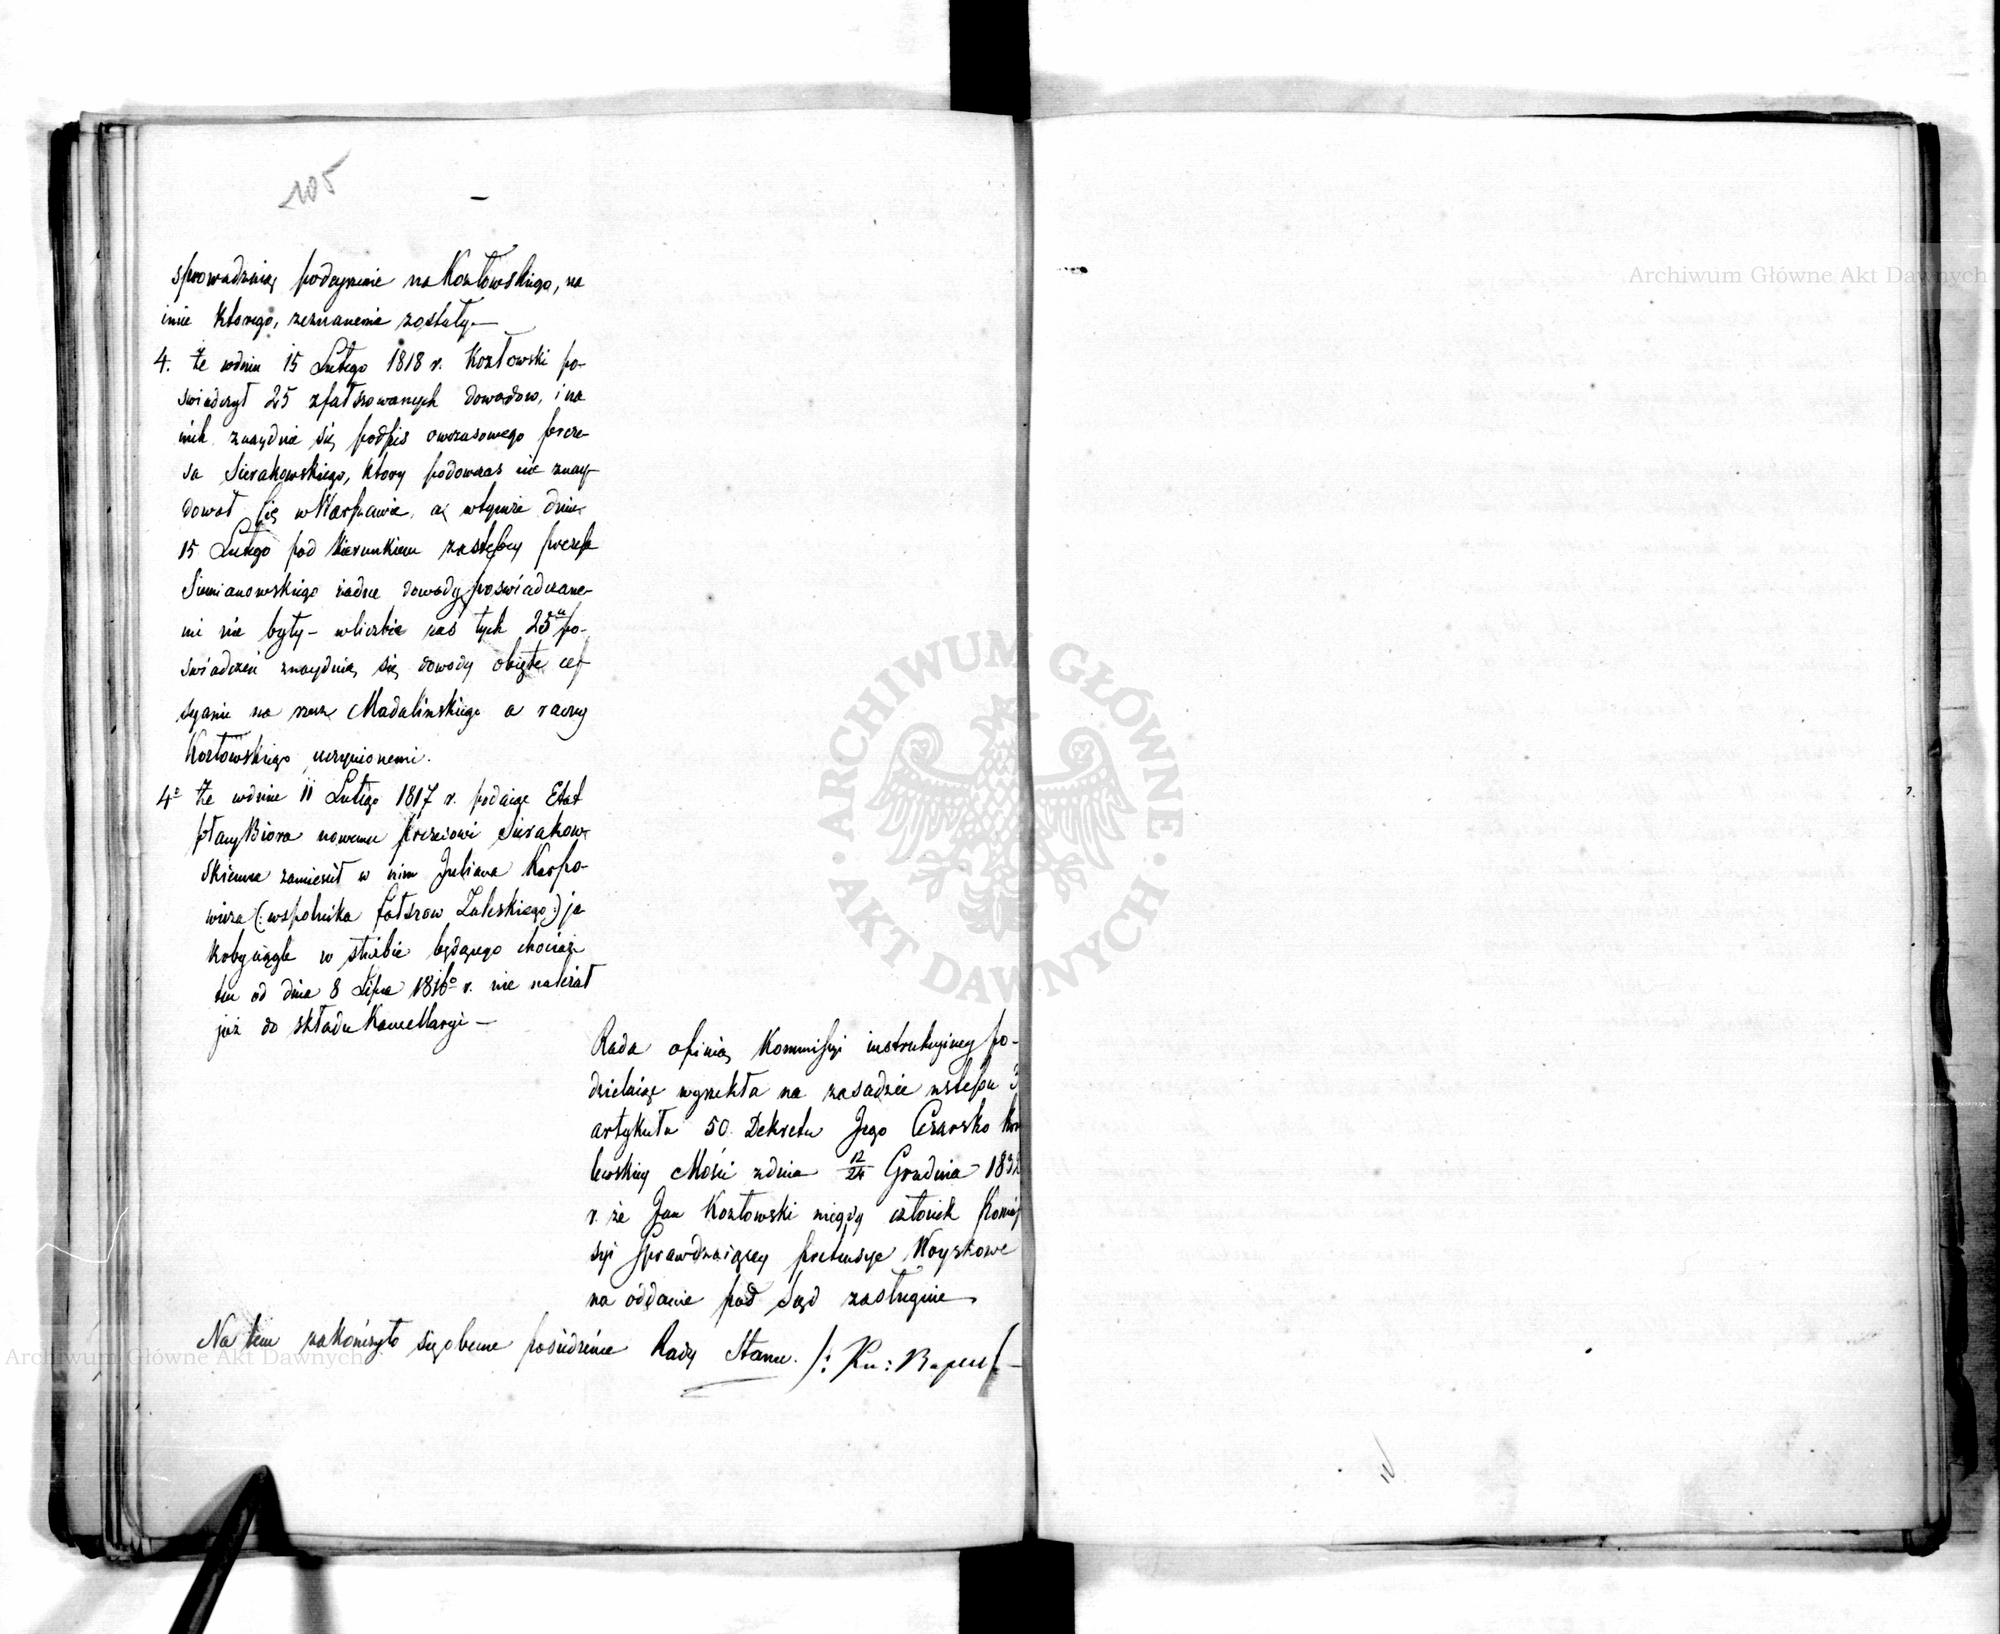 105
sprowadzaią podeyrzenie na Kozłowskiego, na
imie ktorego, zeznanemi zostały.—
4. że wdniu 15 Lutego 1818 r. Kozłowski po-
świadczył 25 zfałszowanych dowodow, i na
nich znayduie się podpis owczasowego preze-
sa Sierakowskiego, ktory podowczas nie znay-
dował się wWarszawie, a wtymże dniu
15 Lutego pod kierunkiem zastępcy prezesa
Siemianowskiego żadne dowody poświadczane-
mi nie były — wliczbie zaś tych 25u po-
świadczeń znayduią się dowody obięte
na rzecz Madalińskiego a raczey
Kozłowskiego uczynionemi.
4o że wdniu 11 Lutego 1817 r. podaiąc Etat
płacy Biora nowemu Prezesowi Sierakow-
skiemu zamieścił w nim Juliana Karpo-
wicza (: wspolnika fałszow Zaleskiego :) ja
koby ciągle w służbie będącego chociaż
ten od dnia 8 Lipca 1816o r. nie należał
już do składu Kancellaryi —
Rada opinią Kommissyi instrukcyiney po-
dzielaiąc wyrzekła na zasadzie wstępu 3
artykułu 50. Dekretu Jego Cesarsko Kró
lewskiey Mości zdnia 12/24 Grudnia 183
r. że Jan Kozłowski niegdy członek Kommis
syi Sprawdzaiącey pretensye Woyskowe
na oddanie pod Sąd zasługuie.
Na tem zakończyło się obecne posiedzenie Rady Stanu.
Archiwum Główne Akt Dawnych
Archiwum Główne Akt Dawnych
ARCHIWUM GŁÓWNE · AKT DAWNYCH ·
Archiwum Główne Akt Dawnych